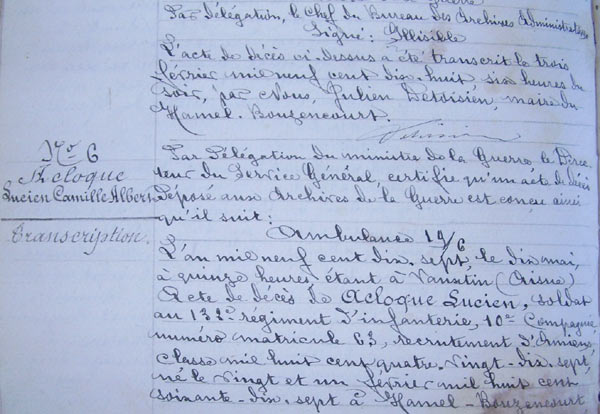 Par Délégation, le Chef du Bureau des Archives Administratives
Signé: Illisible
L'acte de décès ci-dessus a été transcrit le trois
février mil neuf cent dix-huit, six heures du
soir, par Nous, Julien Detoisien, maire du
Hamel-Bouzencourt.
No 6
Acloque
Lucien Camille Albert
transcription.
Par Délégation du ministre de la Guerre le Direc-
teur du Service Général, certifie qu'un acte de décès
Déposé aux Archives de la Guerre est conçu ainsi
qu'il suit:
Ambulance 14/6
L'an mil neuf cent dix-sept, le dix mai,
à quinze heures étant à (Aisne)
Acte de décès de Acloque Lucien, soldat
au régiment d'infanterie, 10e Compagnie,
numéro matricule 63, recrutement d'Amiens
classe mil huit cent quatre-vingt-dix-sept
né le vingt et un février mil huit cent
soixante-dix-sept à Hamel-Bouzencourt